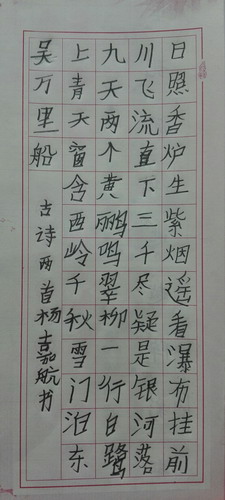 日照香炉生紫烟遥看瀑布挂前
川飞流直下三千尽疑是银河落
九天两个黄鹂鸣翠柳一行白鹭
上青天窗含西岭千秋雪门泊东
吴万里船
古诗两首杨嘉航书